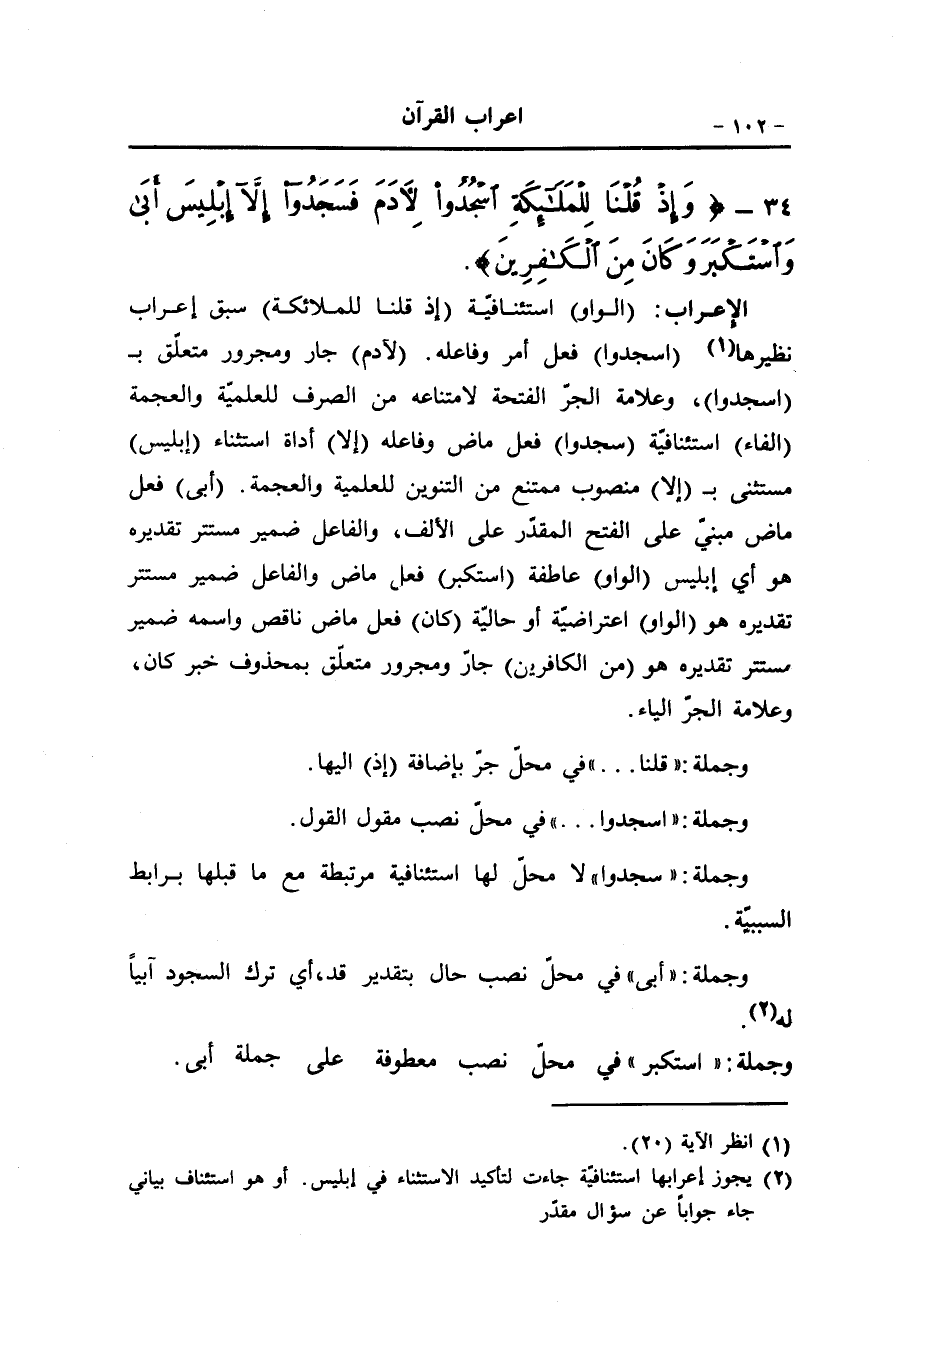 - ١٠٢ -
اعراب القرآن
٣٤ ـ ﴿ وَإِذْ قُلْنَا لِلْمَلَـٰٓئِكَةِ ٱسْجُدُوا۟ لِأَدَمَ فَسَجَدُوٓا۟ إِلَّآ إِبْلِيسَ أَبَىٰ
وَٱسْتَكْبَرَ وَكَانَ مِنَ ٱلْكَـٰفِرِينَ﴾.
الإعـراب: (الـواو) استئنـافيّـة (إذ قلنـا للمـلائكـة) سبق إعـراب
نظيرها(١) (اسجدوا) فعل أمر وفاعله. (لآدم) جار ومجرور متعلّق بـ
(اسجدوا)، وعلامة الجرّ الفتحة لامتناعه من الصرف للعلميّة والعجمة
(الفاء) استئنافيّة (سجدوا) فعل ماض وفاعله (إلا) أداة استثناء (إبليس)
مستثنى بـ (إلا) منصوب ممتنع من التنوين للعلمية والعجمة. (أبى) فعل
ماض مبنيّ على الفتح المقدّر على الألف، والفاعل ضمير مستتر تقديره
هو أي إبليس (الواو) عاطفة (استكبر) فعل ماض والفاعل ضمير مستتر
تقديره هو (الواو) اعتراضيّة أو حاليّة (كان) فعل ماض ناقص واسمه ضمير
مستتر تقديره هو (من الكافرين) جارّ ومجرور متعلّق بمحذوف خبر كان،
وعلامة الجرّ الياء.
وجملة:« قلنا. . .»في محلّ جرّ بإضافة (إذ) اليها.
وجملة:« اسجدوا. . .»في محلّ نصب مقول القول.
وجملة:« سجدوا»لا محلّ لها استئنافية مرتبطة مع ما قبلها بـرابط
السببيّة.
وجملة:«أبى»في محلّ نصب حال بتقدير قد،أي ترك السجود آبياً
له(٢).
وجملة:« استكبر »في محلّ نصب معطوفة على جملة أبى.
(١) انظر الآية (٢٠).
(٢) يجوز إعرابها استئنافيّة جاءت لتأكيد الاستثناء في إبليس. أو هو استئناف بياني
جاء جواباً عن سؤال مقدّر